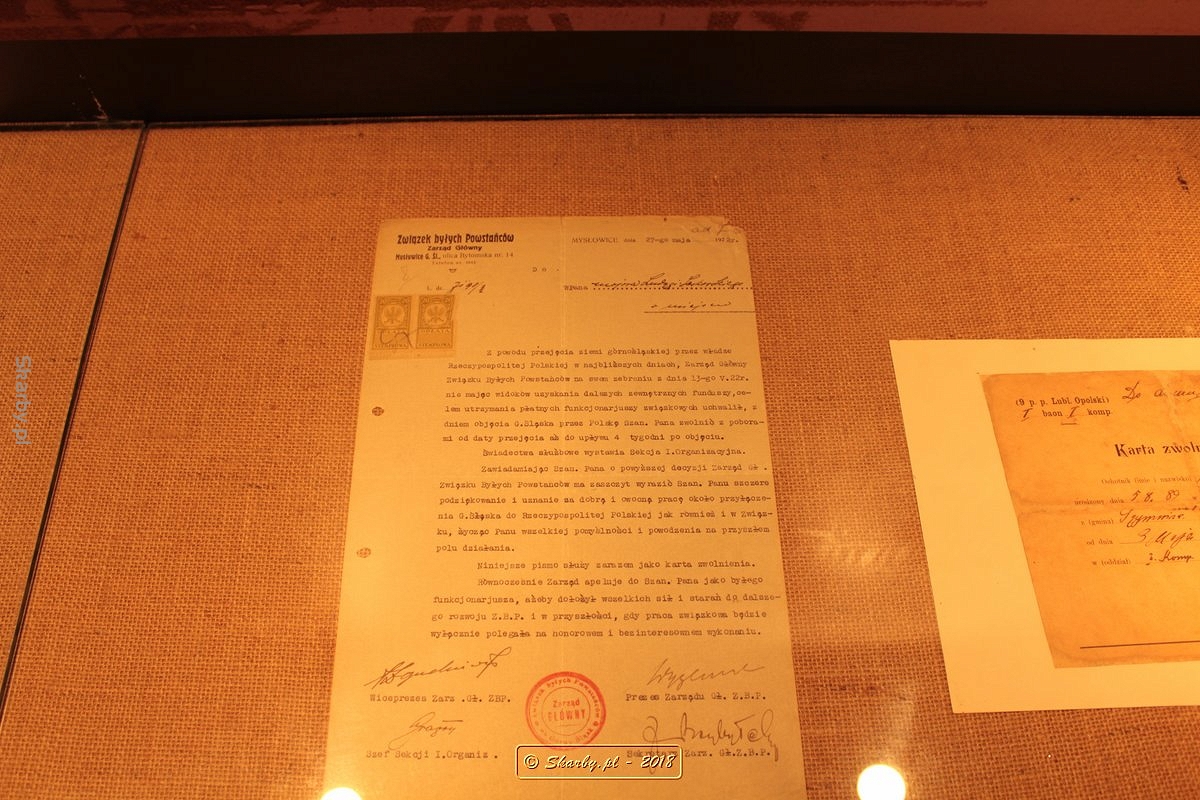 Związek byłych Powstańców
Zarząd Główny
Mysłowice G. Śl., ulica Bytomska nr. 14
MYSŁOWICE dnia 27-go maja 1922r.
Do
WPana
w miejscu
OPŁATA STEMPLOWA
Z powodu przejęcia ziemi górnośląskiej przez władze
Rzeczypospolitej Polskiej w najbliższych dniach, Zarząd Główny
Związku Byłych Powstańców na swem zebraniu z dnia 13-go V.22r.
nie mając widoków uzyskania dalszych zewnętrznych funduszy,ce-
lem utrzymania płatnych funkcjonarjuszy związkowych uchwalił, z
dniem objęcia G.Śląska przez Polskę Szan. Pana zwolnić z pobora-
mi od daty przejęcia aż do upływu 4 tygodni po objęciu.
Świadectwa służbowe wystawia Sekcja I.Organizacyjna.
Zawiadamiając Szan. Pana o powyższej decyzji Zarząd Gł.
Związku Byłych Powstańców ma zaszczyt wyrazić Szan. Panu szczere
podziękowanie i uznanie za dobrą i owocną pracę około przyłącze-
nia G.Śląska do Rzeczypospolitej Polskiej jak również i w Związ-
ku, życząc Panu wszelkiej pomyślności i powodzenia na przyszłem
polu działania.
Niniejsze pismo służy zarazem jako karta zwolnienia.
Równocześnie Zarząd apeluje do Szan. Pana jako byłego
funkcjonarjusza, ażeby dołożył wszelkich sił i starań do dalsze-
go rozwoju Z.B.P. i w przyszłości, gdy praca związkowa będzie
wyłącznie polegała na honorowem i bezinteresownem wykonaniu.
Wiceprezes Zarz. Gł. ZBP.
Prezes Zarządu Gł. Z.B.P.
Związek byłych Powstańców
Zarząd
GŁÓWNY
Szef Sekcji I.Organiz.
Sekretarz Zarz. Gł.Z.B.P.
(9 p. p. Lubl. Opolski)
I baon I komp.
Karta zwoln
Ochotnik (imię i nazwisko)
urodzony dnia 5.8.89
z (gminy)
od dnia 3. Maja
w (oddział) 1. Komp.
Skarby.pl
© Skarby.pl - 2018